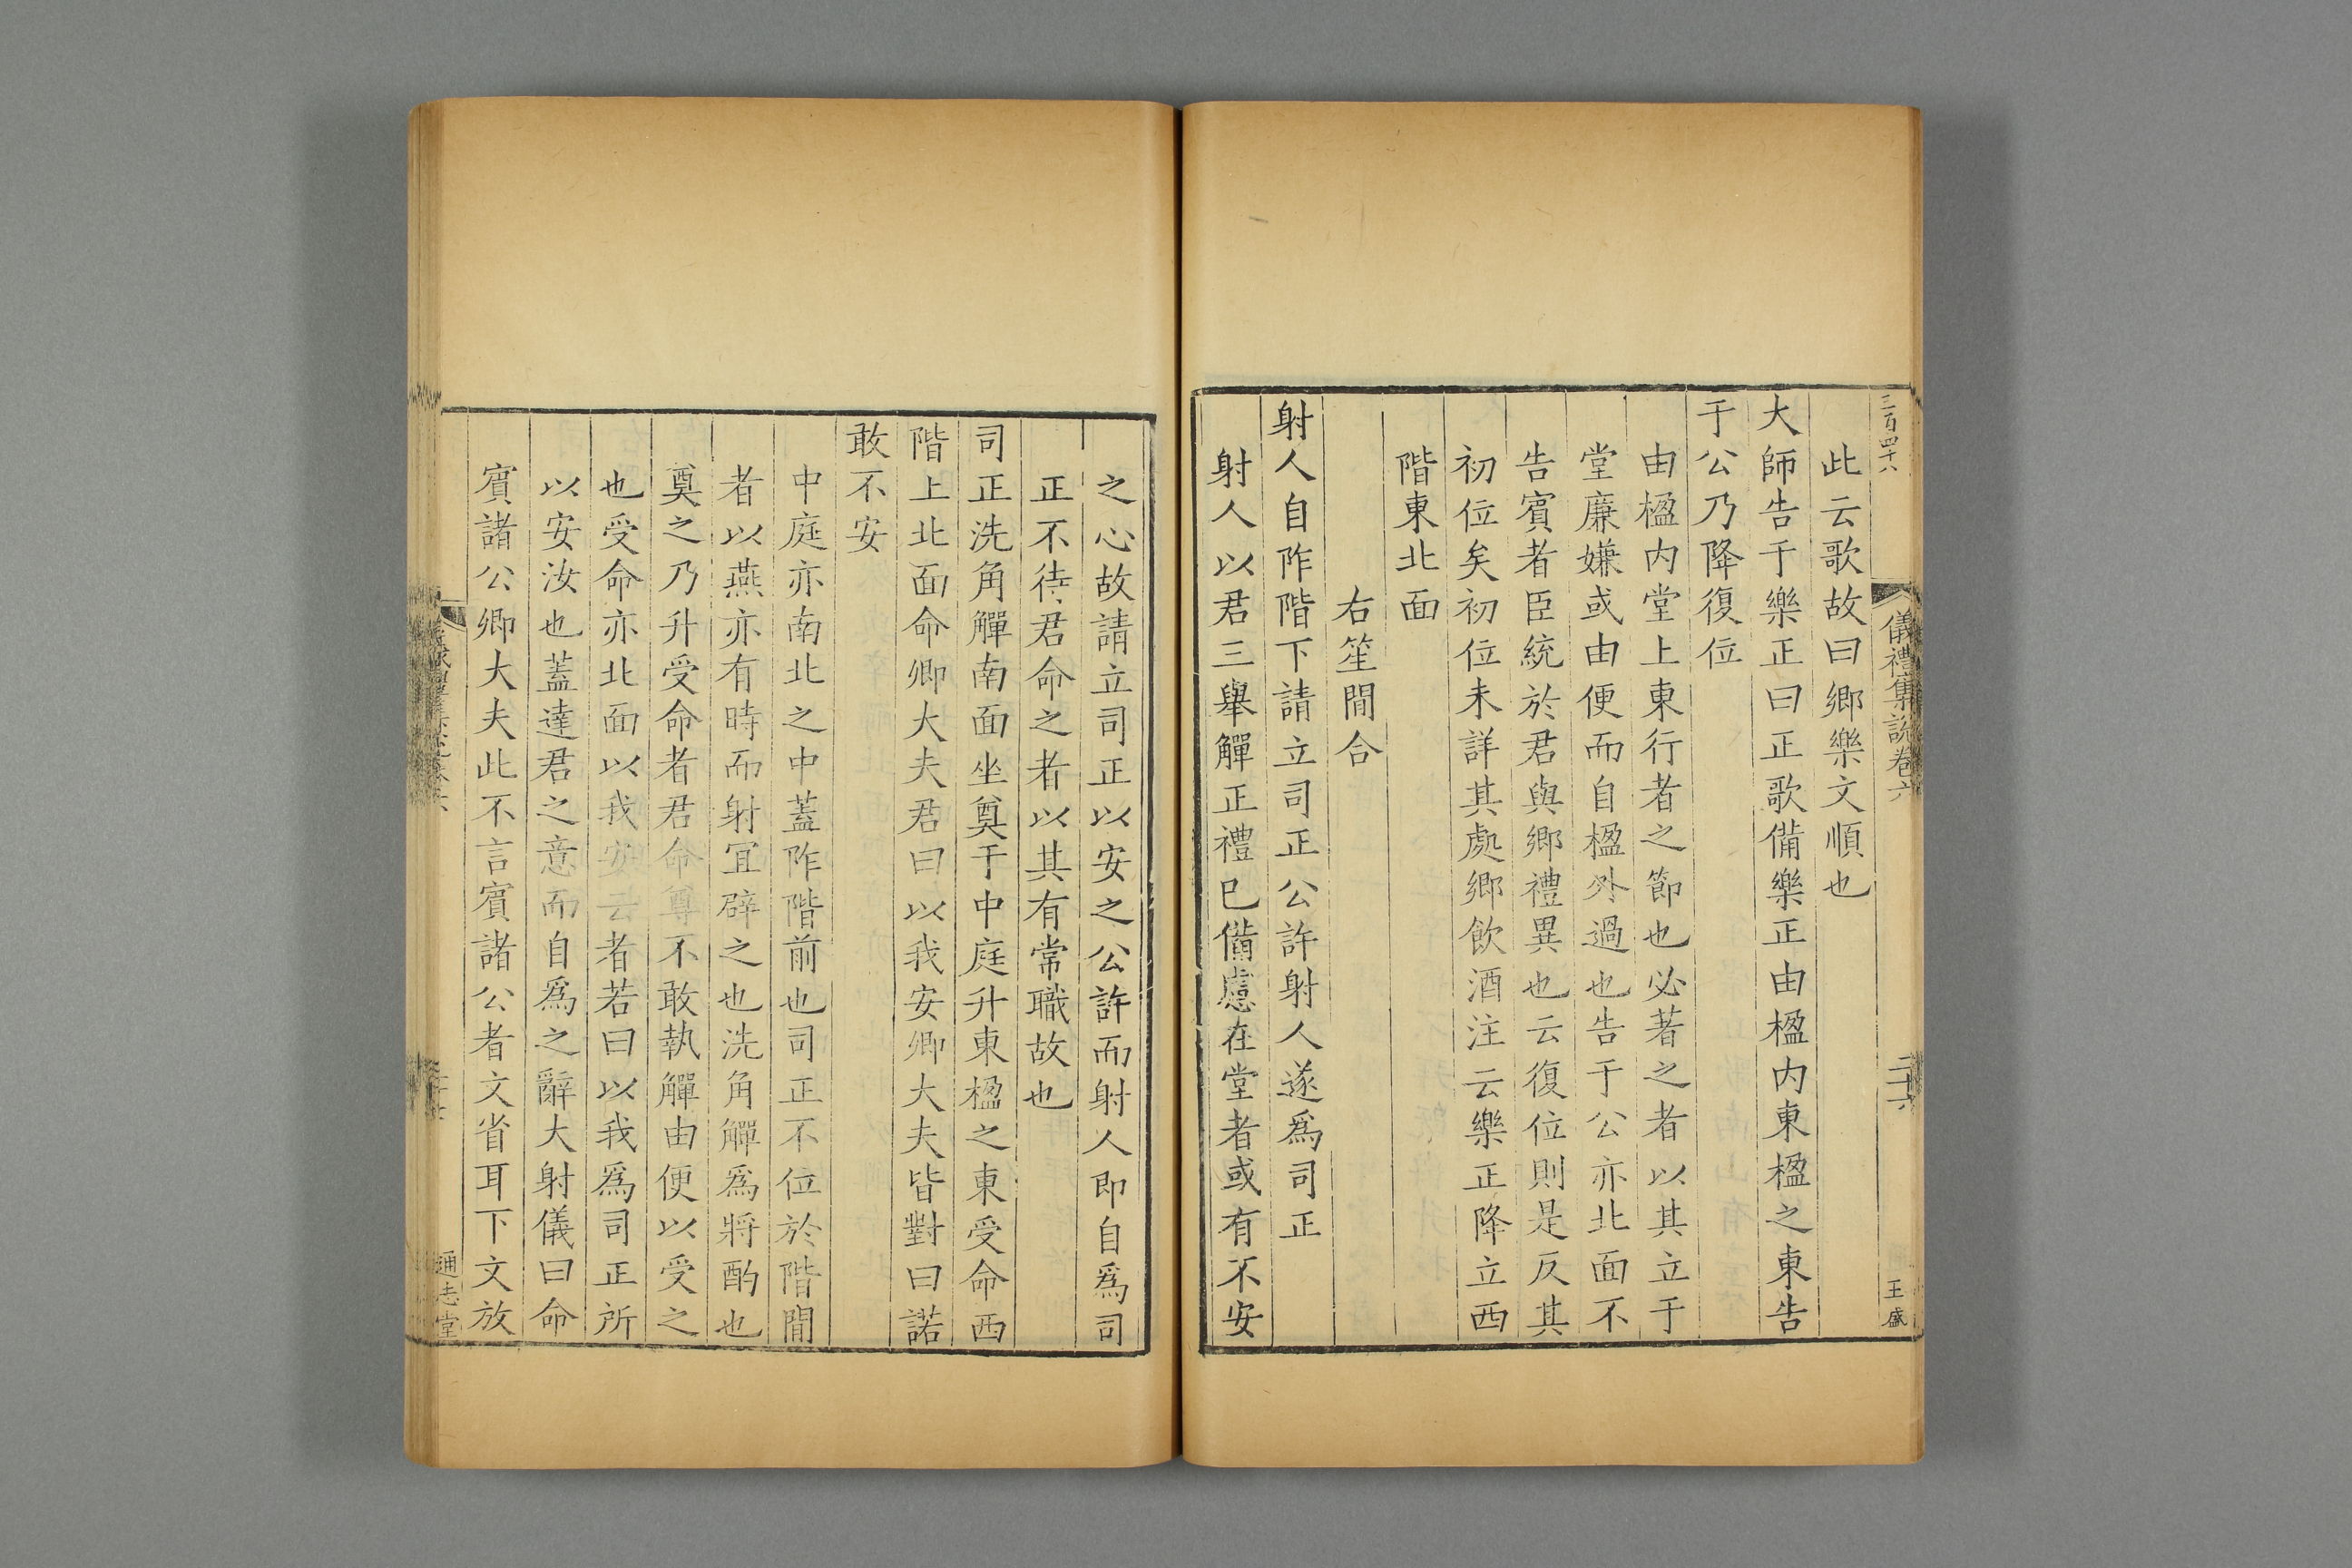 三百四十八
儀禮集說卷六
二十六
王盛
此云歌故曰鄉樂文順也
大師告于樂正曰正歌備樂正由楹内東楹之東告
于公乃降復位
由楹内堂上東行者之節也必著之者以其立于
堂廉嫌或由便而自楹外過也告于公亦北面不
告賓者臣統於君與鄉禮異也云復位則是反其
初位矣初位未詳其處鄉飲酒注云樂正降立西
階東北面
右笙間合
射人自阼階下請立司正公許射人遂爲司正
射人以君三舉觶正禮已備慮在堂者或有不安
之心故請立司正以安之公許而射人即自爲司
正不待君命之者以其有常職故也
司正洗角觶南面坐奠于中庭升東楹之東受命西
階上北面命卿大夫君曰以我安卿大夫皆對曰諾
敢不安
中庭亦南北之中蓋阼階前也司正不位於階間
者以燕亦有時而射宜辟之也洗角觶爲將酌也
奠之乃升受命者君命尊不敢執觶由便以受之
也受命亦北面以我安云者若曰以我爲司正所
以安汝也蓋達君之意而自爲之辭大射儀曰命
賓諸公卿大夫此不言賓諸公者文省耳下文放
通志堂